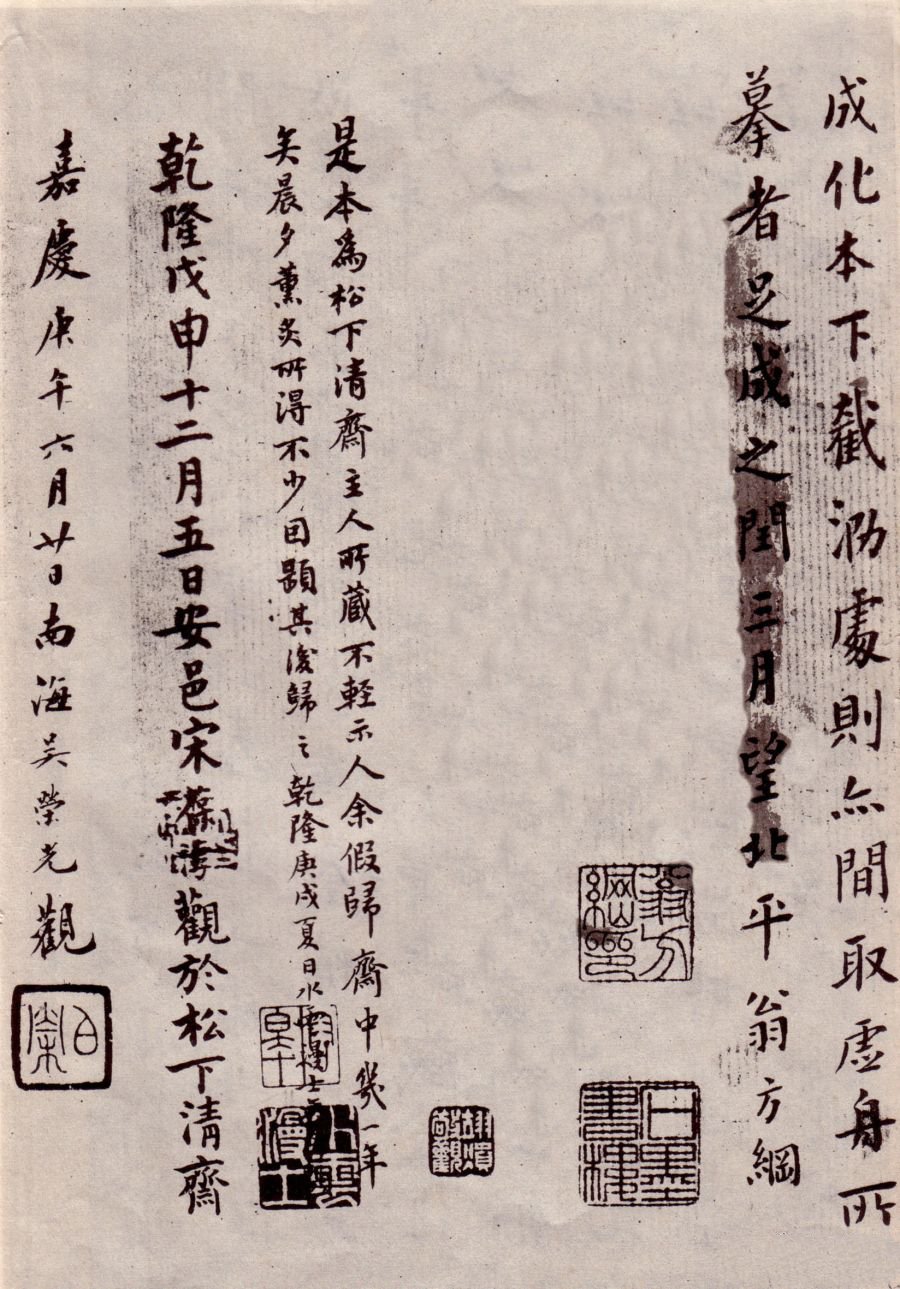 成化本下截泐處則亦間取虛舟所
摹者足成之閏三月望北平翁方綱
是本為松下清齋主人所藏不輕示人余假歸齋中幾一年
矣晨夕薰炙所得不少因題其後歸之乾隆庚戌夏日水
乾隆戊申十二月五日安邑宋葆淳觀於松下清齋
嘉慶庚午六月廿日南海吳榮光觀
翁方綱印
伯榮